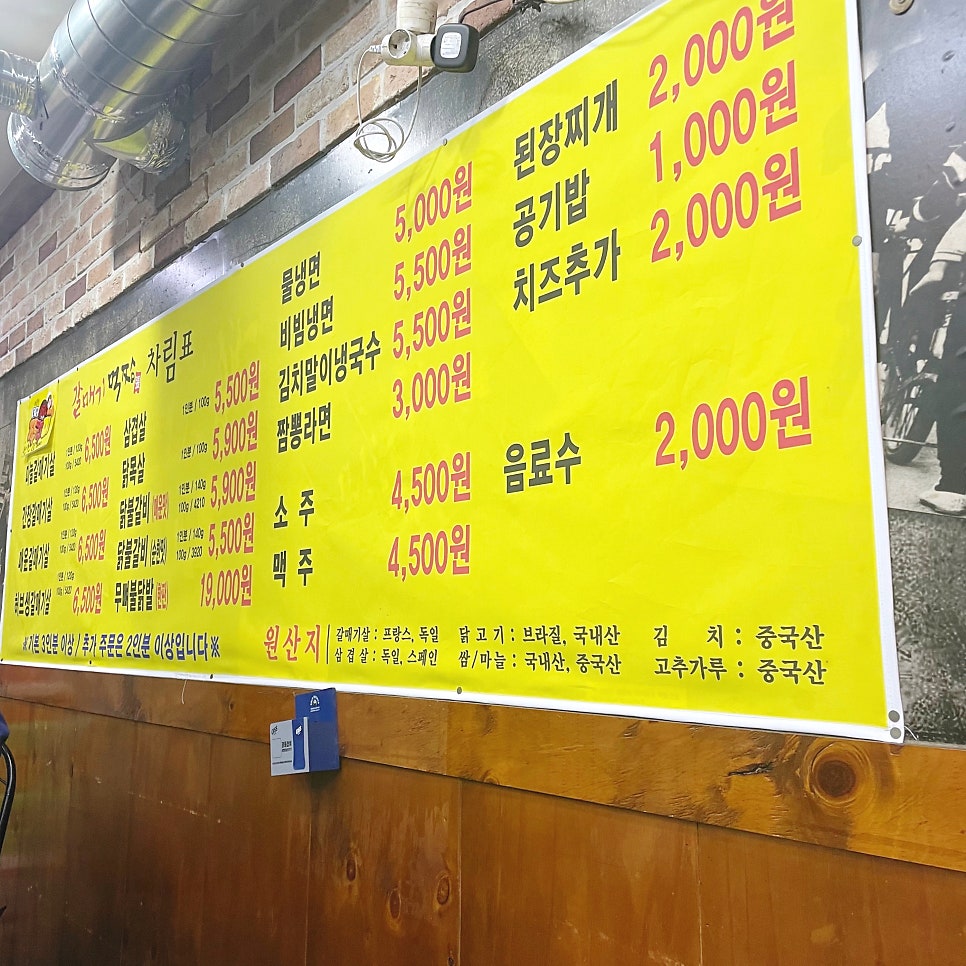 갈매기 먹짱 차림표
마늘갈매기살 1인분 / 120g 100g / 5420 6,500원
간장갈매기살 1인분 / 120g 100g / 5420 6,500원
매운갈매기살 1인분 / 120g 100g / 5420 6,500원
허브갈매기살 1인분 / 120g 100g / 5420 6,500원
삼겹살 1인분 / 100g 5,500원
닭목살 1인분 / 100g 5,900원
닭불갈비 (매운맛) 1인분 / 140g 100g / 4210 5,900원
닭불갈비 (순한맛) 1인분 / 140g 100g / 3920 5,500원
무뼈불닭발 (한판) 19,000원
※기본 3인분 이상 / 추가 주문은 2인분 이상입니다※
물냉면 5,000원
비빔냉면 5,500원
김치말이냉국수 5,500원
짬뽕라면 3,000원
소 주 4,500원
맥 주 4,500원
된장찌개 2,000원
공기밥 1,000원
치즈추가 2,000원
음료수 2,000원
원산지
갈매기살 : 프랑스, 독일 닭 고 기 : 브라질, 국내산 김 치 : 중국산
삼 겹 살 : 독일, 스페인 쌀/마늘 : 국내산, 중국산 고추가루 : 중국산